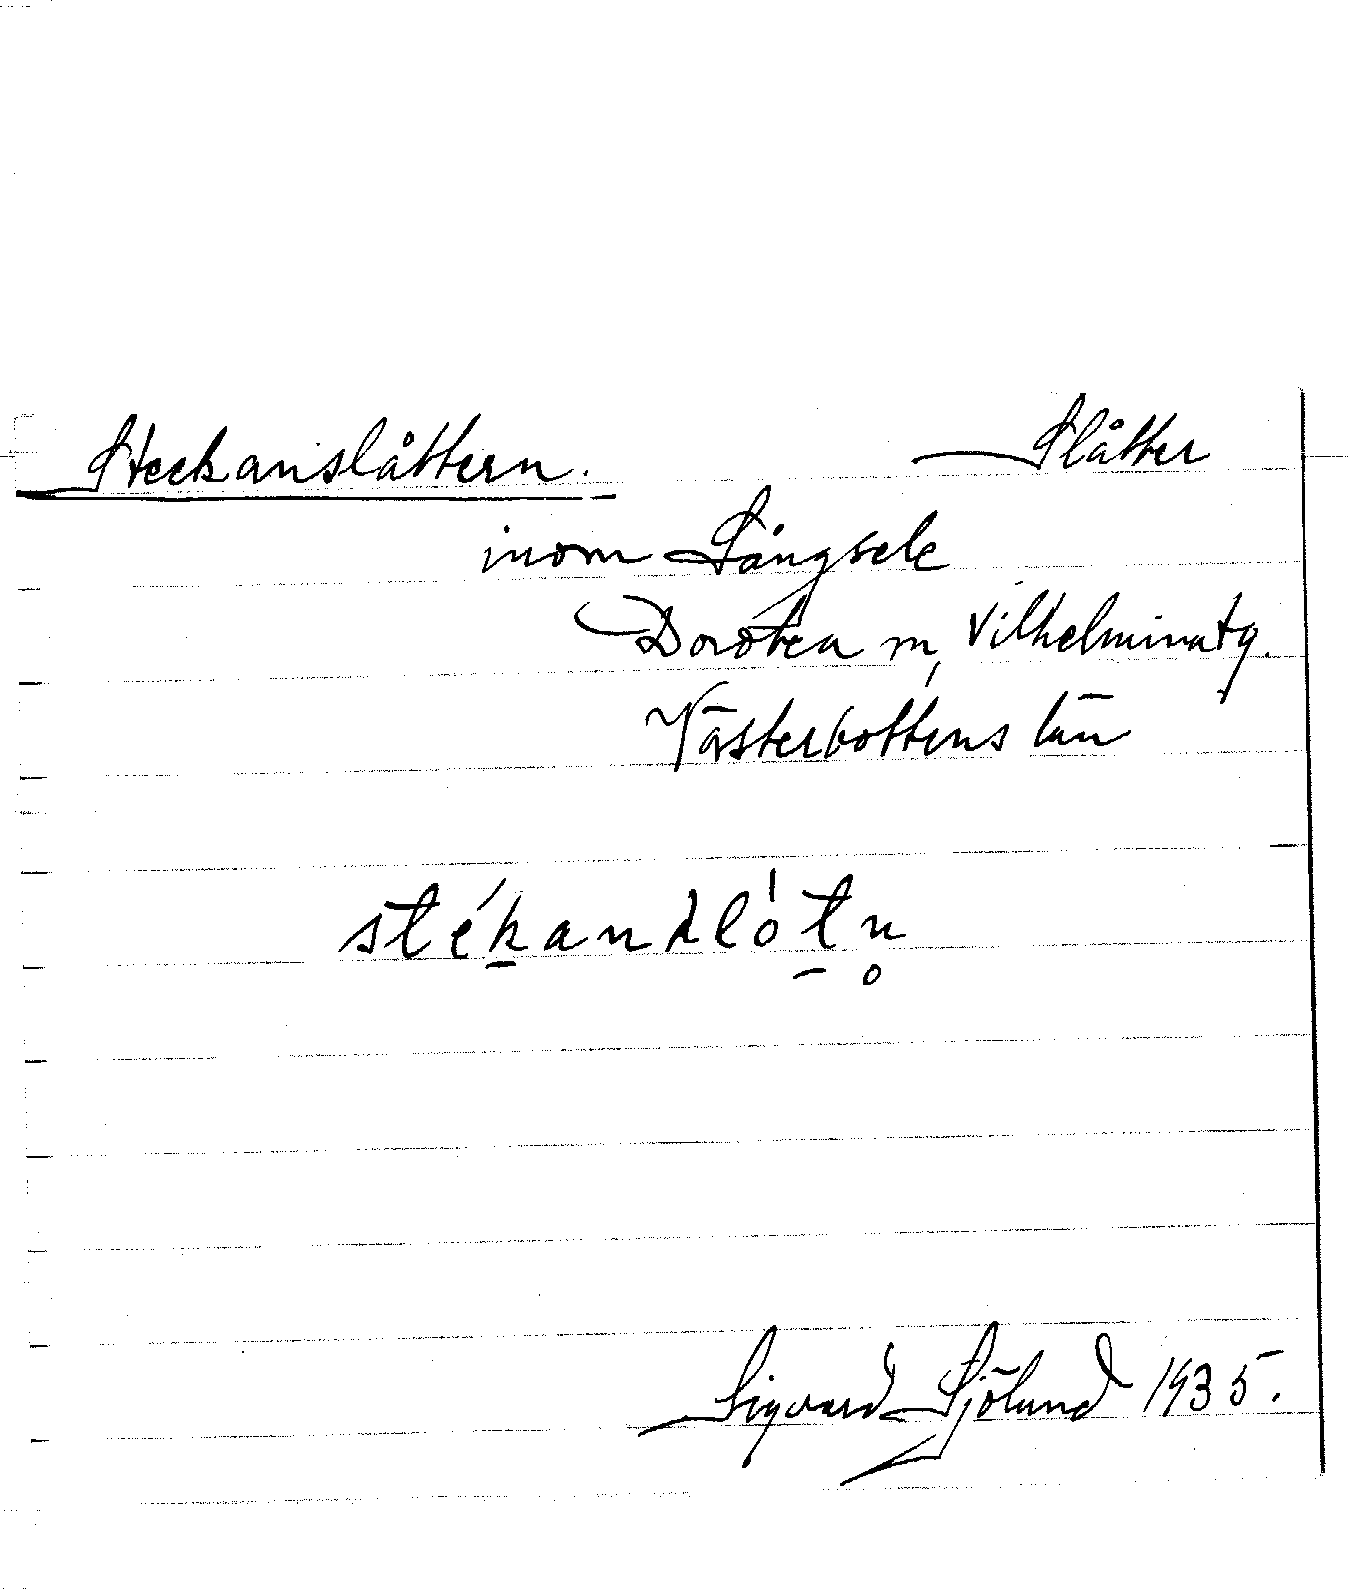 Steckanslåttern. Slåtter
inom Långsele
Dorotea m, Vilhelmina tg.
Västerbottens län
Sigvard Sjölund 1935.